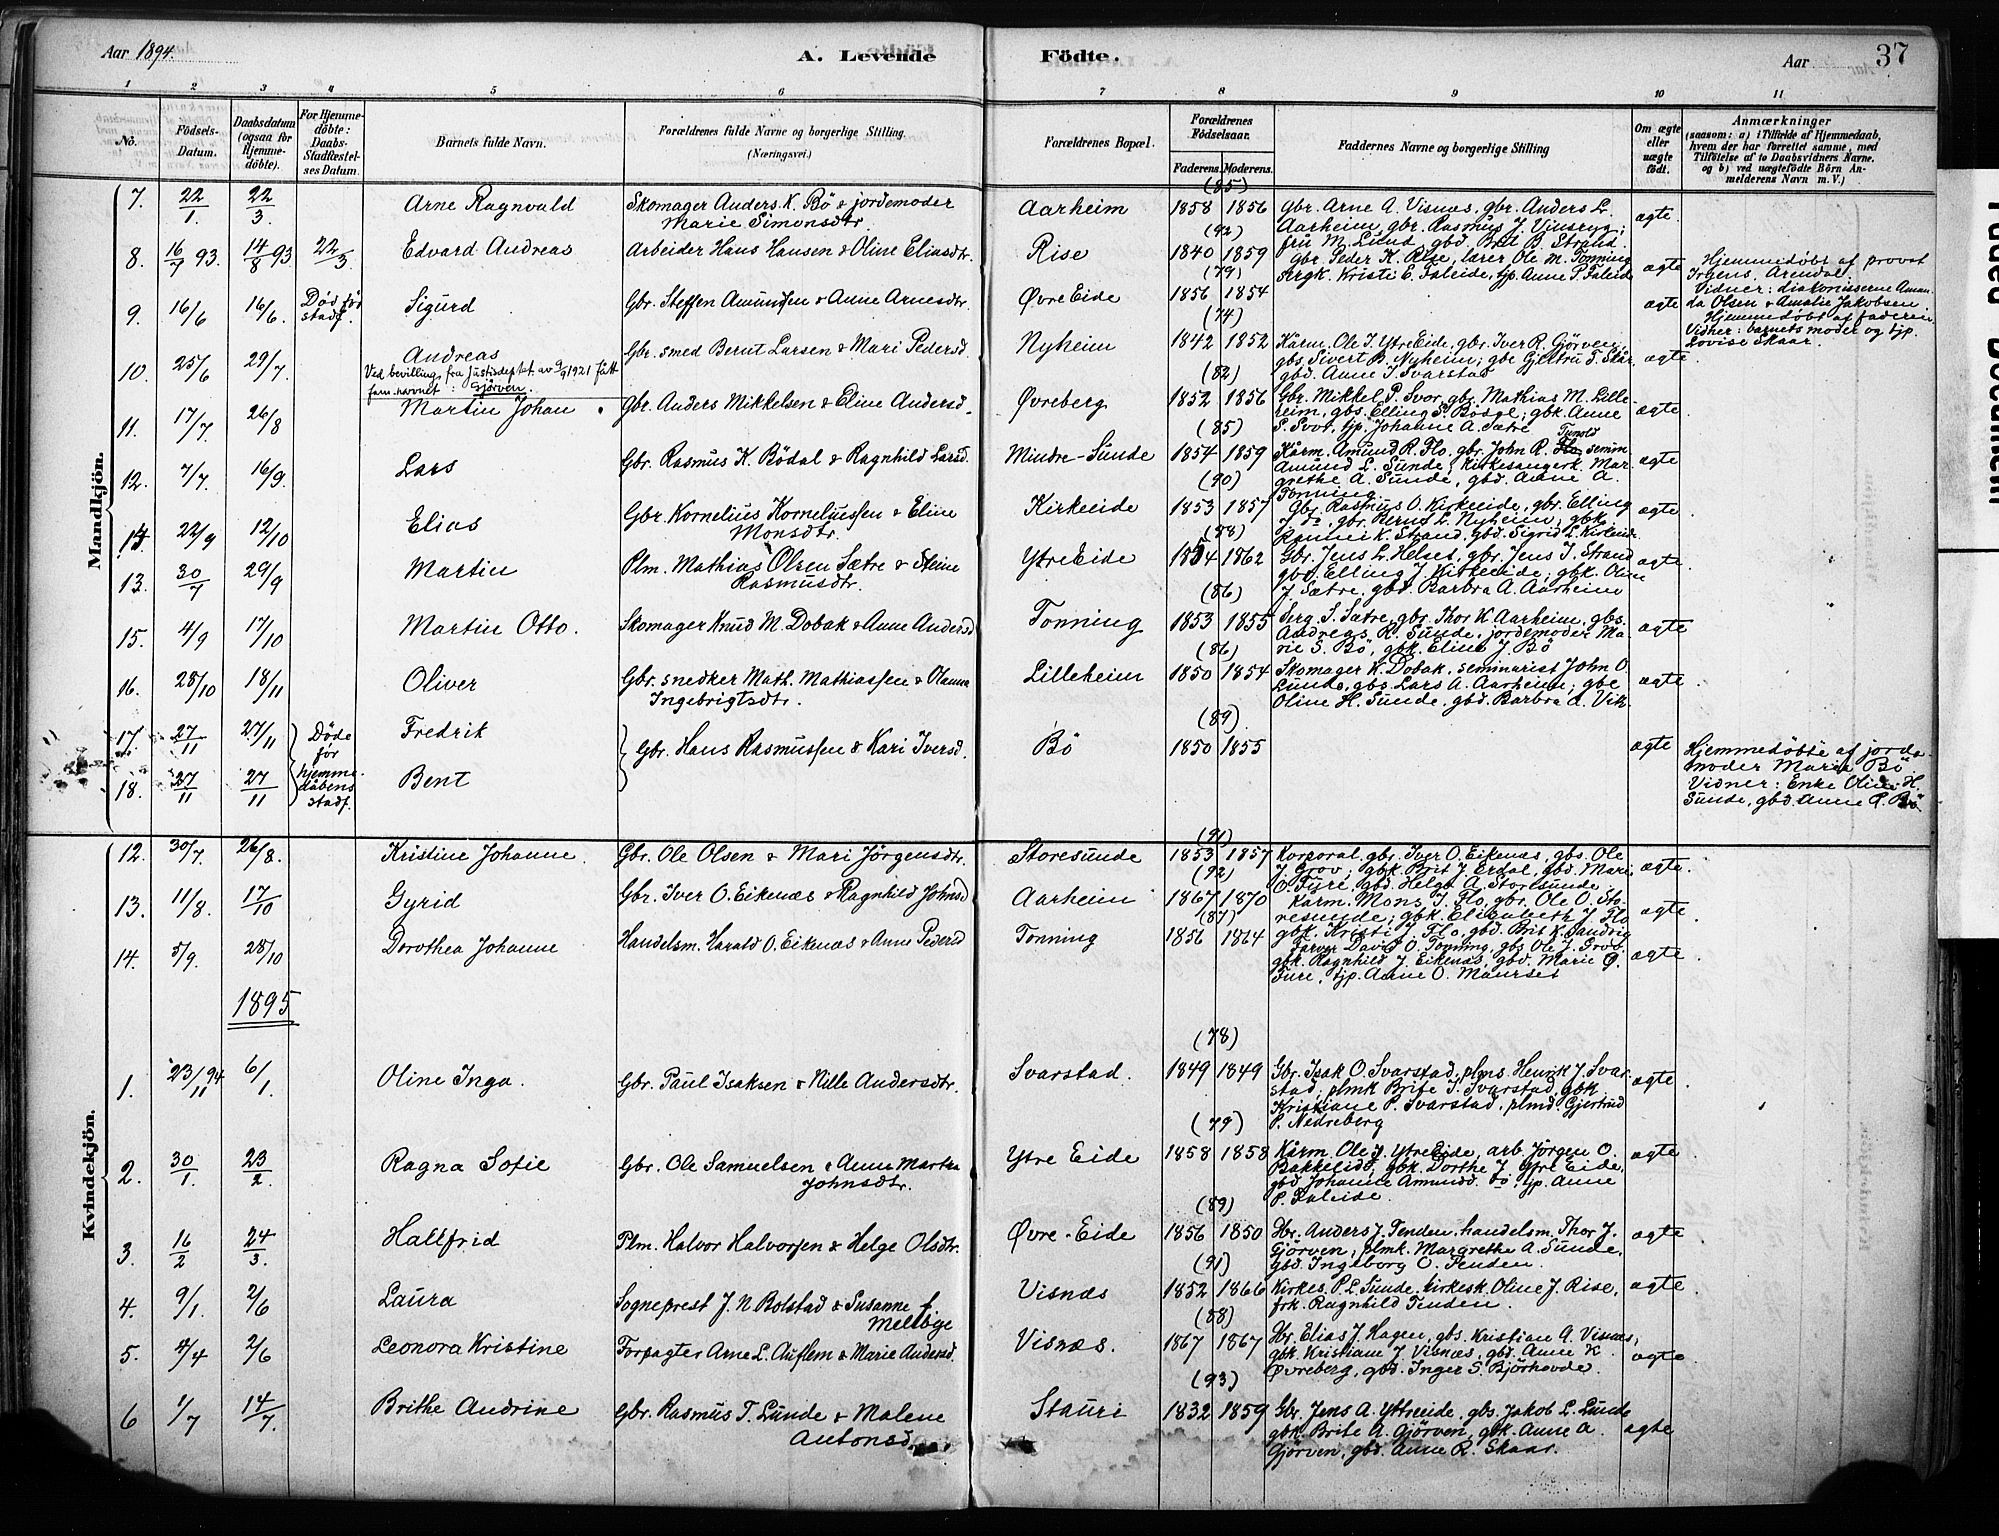 Aar 1894.
A. Levende Födte.
Aar
37
1 2 3 4 5 6 7 8 9 10 11
No.
Födsels-Datum.
Daabsdatum (ogsaa for Hjemme-döbte).
For Hjemme-döbte: Daabs-Stadfæstel-ses Datum.
Barnets fulde Navn.
Forældrenes fulde Navne og borgerlige Stilling.
(Næringsvei.)
Forældrenes Bopæl.
Forældrenes Födselsaar.
Faderens. Moderens.
Faddernes Navne og borgerlige Stilling
Om ægte eller uægte födt.
Anmærkninger
(saasom: a) i Tilfælde af Hjemmedaab, hvem der har forrettet samme, med Tilföielse af to Daabsvidners Navne. og b) ved uægtefödte Börn An-melderens Navn m. V.)
Mandkjön.
7. 22/1. 22/3. Arne Ragnvald Skomager Anders K. Bö & jordemoder Marie Simonsdtr. Aarheim (85) 1858 1856 Gbr. Arne A. Visnæs, gbr. Anders L. Aarheim, gbr. Rasmus J. Vinsryg; fru M. Lund, gbd. Brit B. Strand. ægte.
8. 16/7 93. 14/8 93 22/3. Edvard Andreas Arbeider Hans Hansen & Oline Eliasdtr. Rise (92) 1840 1859 Gbr. Peder K. Rise, lærer Ole M. Tonning sergk. Kristi E. Faleide, tjp. Anne P. Faleide ægte Hjemmedöbt af provst Irgens, Arendal. Vidner: diakonisserne Aman-da Olsen & Amalie Jakobsen
9. 16/6 16/6. Död för stadf. Sigurd Gbr. Steffen Amundsen & Anne Arnesdtr. Øvre Eide (79) 1856 1854 ægte Hjemmedöbt af faderen. Vidner: barnets moder og tjp. Lovise Skaar.
10. 25/6 29/7. Andreas Gbr. smed Bernt Larsen & Mari Pedersd. Nyheim (74) 1842 1852 Kårm. Ole J. Ytre Eide, gbr. Iver R. Gjörven, gbs. Sivert B. Nyheim; gbe Gjertru T. Skår, gbd. Anne J. Svarstad ægte.
Ved bevilling fra Justisdeptet. av 9/9 1921 fått fam.navnet: Gjörven.
11. 17/7. 26/8 Martin Johan Gbr. Anders Mikkelsen & Eline Andersd. Øvreberg (82) 1852 1856 Gbr. Mikkel P. Svor, gbr. Mathias M. Lille-heim, gbs. Elling S. Bödal; gbk. Anne S. Svor, tjp. Johanne A. Sætre ægte.
12. 7/7. 16/9. Lars Gbr. Rasmus K. Bödal & Ragnhild Larsd. Mindre-Sunde (85) 1854 1859 Kårm. Amund R. Flo, gbr. John R. Tunold semin. Amund L. Sunde; Kirkesangerk. Mar-grethe A. Sunde, gbd. Anne A. Tonning. ægte
14. 22/9 12/10 Elias Gbr. Kornelius Korneliussen & Eline Monsdtr. Kirkeeide (90) 1853 1857 Gbr. Rasmus O. Kirkeeide, gbr. Elling J. do, gbr. Bernt L. Nyheim; gbk. Rannei K. Strand, gbd. Sigrid L. Kirkeide ægte.
13. 30/7 29/9 Martin Plm. Mathias Olsen Sætre & Stine Rasmusdtr. Ytre Eide (88) 1854 1862 Gbr. Jens L. Helset, gbr. Jens J. Strand gbd. Elling J. Kirkeeide; gbk. Oline J. Sætre, gbd. Barbra A. Aarheim ægte.
15. 4/9 17/10 Martin Otto. Skomager Knud M. Dobak & Anne Andersd Tonning (86) 1853 1855 Serg. S. Sætre, gbr. Thor K Aarheim, gbs. Andreas R. Sunde, jordemoder Ma-rie S. Bö, gbk. Eline J. Bö ægte
16. 28/10 18/11 Oliver Gbr. snedker Math. Mathiassen & Olanna Ingebrigtsdtr. Lilleheim (86) 1850 1854 Skomager K. Dobak, seminarist John O. Lunde, gbs. Lars A. Aarheim; gbe Oline H. Sunde, gbd. Barbra A. Vik. ægte
17. 27/11 27/11 Döde för hjemme-dåbens stadf. Fredrik Gbr. Hans Rasmussen & Kari Iversd. Bö (89) 1850 1855 ægte Hjemmedöbte af jorde-moder Marie Bö Vidner: Enke Oline H. Sunde, gbd. Anne P. Bö
18. 27/11 27/11 Bent
Kvindekjön.
12. 30/7. 26/8. Kristine Johanne. Gbr. Ole Olsen & Mari Jörgensdtr. Storesunde (91) 1853 1857 Korporal, gbr. Iver O. Eikenæs, gbs. Ole J. Grov; gbk Brit J. Erdal, gbd. Mari O. Fure, gbd. Helge A. Storesunde ægte.
13. 11/8. 17/10 Gyrid Gbr. Iver O. Eikenæs & Ragnhild Johnsd Aarheim (92) 1867 1870 Kårm. Mons J. Flo, gbr. Ole O. Sto-resunde; gbk. Elisabeth J. Flo gbk. Kristi J. Flo, gbd. Brit K. Sandvig ægte.
14. 5/9. 28/10 Dorothea Johanne Handelsm. Harald O. Eikenæs & Anne Pedersd Tonning (87) 1856 1864 Farver David O. Tonning, gbs Ole J. Grov. gbk. Ragnhild J. Eikenæs, gbd. Marie O. Fure, tjp. Anne O. Maurset ægte.
1895
1. 23/11 94 6/1. Oline Inga. Gbr. Paul Isaksen & Nille Andersdtr. Svarstad. (78) 1849 1849 Gbr. Isak O. Svarstad, plms. Henrik J. Svar-stad; plmk Brite J. Svarstad, gbk. Kristiane P. Svarstad, plmd. Gjertrud P. Nedreberg ægte.
2. 30/1. 23/2. Ragna Sofie Gbr. Ole Samuelsen & Anne Martha Johnsdtr. Ytre Eide (79) 1858 1858 Kårm. Ole J. Ytre Eide, arb. Jörgen O. Bakkelid; gbk. Dorthe J. Ytre Eide, gbd Johanne Amundd. do, tjp. Anne P. Faleide. ægte
3. 16/2 24/3. Hallfrid Plm. Halvor Halvorsen & Helge Olsdtr. Øvre-Eide (89) 1856 1850 Gbr. Anders J. Tenden, handelsm. Thor J. Gjörven, plmk. Margrethe A. Sunde, gbd. Ingeborg O. Tenden. ægte
4. 9/1. 2/6 Laura Sogneprest J. N. Bolstad & Susanne f. Mellbye Visnæs (91) 1852 1866 Kirkes. P. L. Sunde, kirkesk. Oline J. Rise, frk. Ragnhild Tenden. ægte
5. 4/4 2/6 Leonora Kristine Forpagter Arne L. Auflem & Marie Andersd. Visnæs. (88) 1867 1867 Gbr. Elias J. Hagen, gbs. Kristian A. Visnæs, gbk. Kristiane J Visnæs, gbd. Anne K. Øvreberg, gbd. Inger S. Bjørhovde. ægte
6 1/7 14/7. Brithe Andrine Gbr. Rasmus T. Lunde & Malene Antonsd. Stauri (93) 1832 1859 Gbr. Jens A. Yttreeide, gbs. Jakob L. Lunde gbk. Brite A. Gjörven, gbk. Anne A. Gjörven, gbd. Anne R. Skaar. ægte